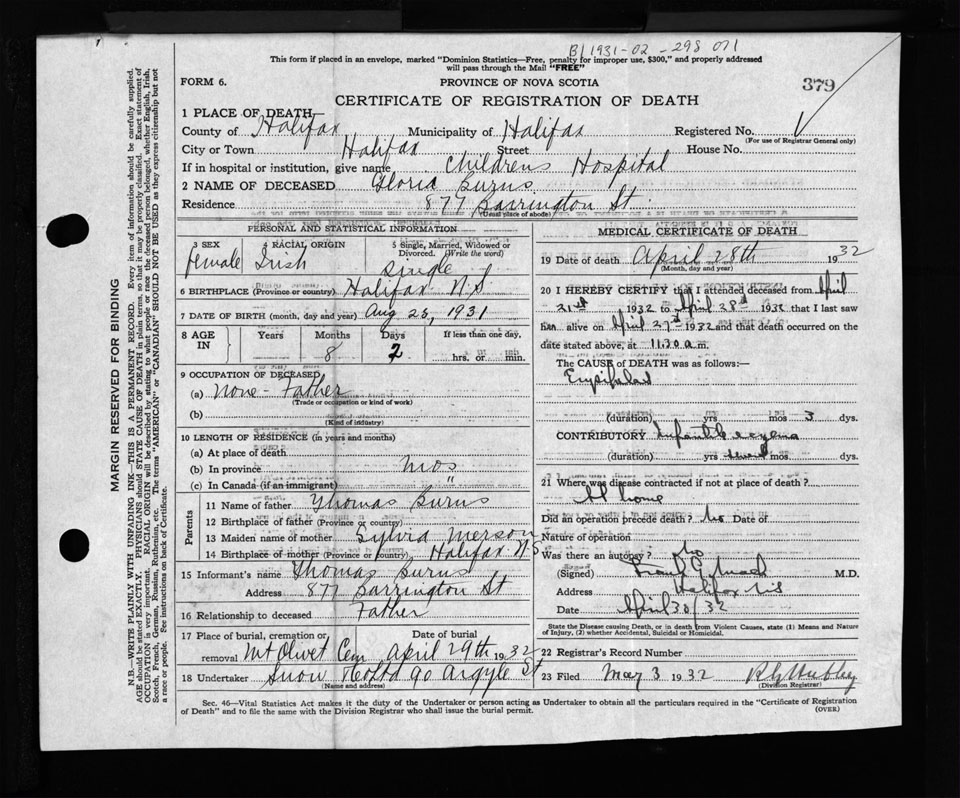 B/1931-02-298 071
This form if placed in an envelope, marked "Dominion Statistics—Free, penalty for improper use, $300," and properly addressed
will pass through the Mail "FREE"
FORM 6. PROVINCE OF NOVA SCOTIA 379
CERTIFICATE OF REGISTRATION OF DEATH
1 PLACE OF DEATH
County of Halifax Municipality of Halifax Registered No.
(For use of Registrar General only)
City or Town Halifax Street House No.
If in hospital or institution, give name Childrens Hospital
2 NAME OF DECEASED Gloria Burns
Residence 877 Barrington St.
(Usual place of abode)
PERSONAL AND STATISTICAL INFORMATION
3 SEX 4 RACIAL ORIGIN 5 Single, Married, Widowed or Divorced. (Write the word)
female Irish Single
6 BIRTHPLACE (Province or country) Halifax N.S
7 DATE OF BIRTH (month, day and year) Aug 25, 1931
8 AGE IN Years Months Days If less than one day,
8 2 hrs. or min.
9 OCCUPATION OF DECEASED
(a) None - Father
(Trade or occupation or kind of work)
(b)
(Kind of industry)
10 LENGTH OF RESIDENCE (in years and months)
(a) At place of death
(b) In province mos
(c) In Canada (if an immigrant) "
Parents
11 Name of father Thomas Burns
12 Birthplace of father (Province or country)
13 Maiden name of mother Sylvia Merson
14 Birthplace of mother (Province or country) Halifax N.S
15 Informant's name Thomas Burns
Address 877 Barrington St
16 Relationship to deceased Father
17 Place of burial, cremation or removal Mt Olivet Cem Date of burial April 29th 1932
18 Undertaker Snow & Co Ltd 90 Argyle St
(Name and address)
MEDICAL CERTIFICATE OF DEATH
19 Date of death April 28th 1932
(Month, day and year)
20 I HEREBY CERTIFY that I attended deceased from April
21st 1932 to April 28th 1932 that I last saw
h alive on April 27th 1932 and that death occurred on
date stated above, at 11.30 a.m.
The CAUSE of DEATH was as follows:—
Erysipelas
(duration) yrs mos 3 dys.
CONTRIBUTORY Infantile eczema
(duration) yrs several mos. dys.
21 Where was disease contracted if not at place of death?
At home
Did an operation precede death? No Date of
Nature of operation
Was there an autopsy? No
(Signed) M.D.
Address Halifax N.S
Date April 30/32
State the Disease causing Death, or in death from Violent Causes, state (1) Means and Nature
of Injury, (2) whether Accidental, Suicidal or Homicidal.
22 Registrar's Record Number
23 Filed May 3 1932
(Division Registrar)
Sec. 46—Vital Statistics Act makes it the duty of the Undertaker or person acting as Undertaker to obtain all the particulars required in the "Certificate of Registration
of Death" and to file the same with the Division Registrar who shall issue the burial permit.
(OVER)
MARGIN RESERVED FOR BINDING
N.B.—WRITE PLAINLY WITH UNFADING INK—THIS IS A PERMANENT RECORD. Every item of information should be carefully supplied.
AGE should be stated EXACTLY. PHYSICIANS should STATE CAUSE OF DEATH in plain terms, so that it may be properly classified. Exact statement of
OCCUPATION is very important. RACIAL ORIGIN will be described by stating to what people or race the deceased person belonged, whether English, Irish,
Scotch, French, German, Russian, Ruthenian, etc. The terms "AMERICAN" or "CANADIAN" SHOULD NOT BE USED as they express citizenship but not
a race or people. See instructions on back of Certificate.